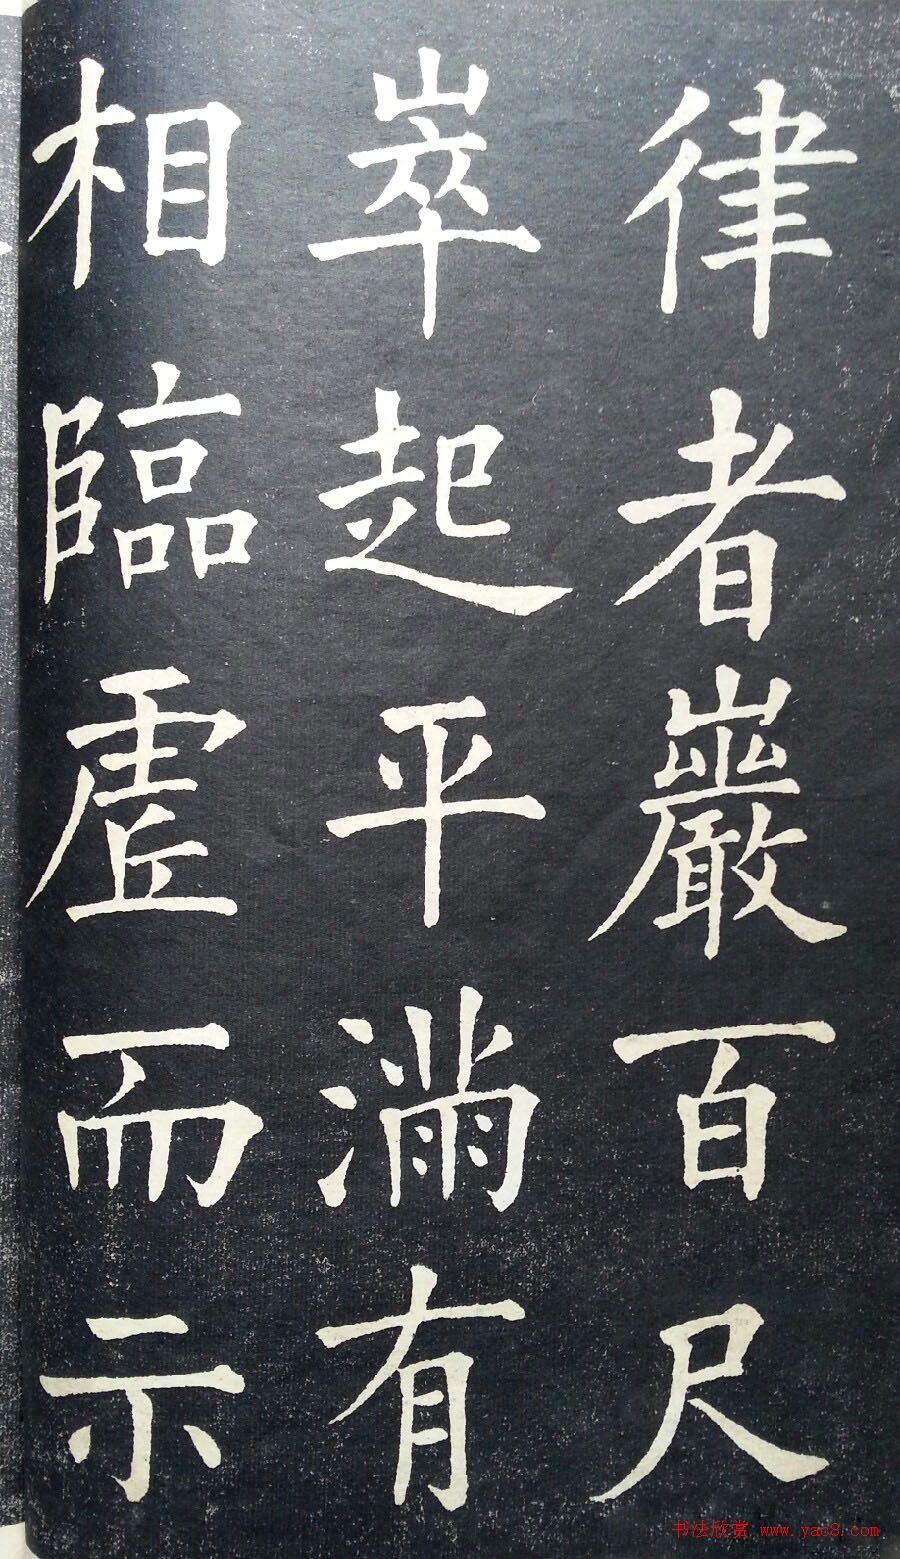 律者巖百尺
崒起平満有
相臨虗而示
书法欣赏 www.yac8.com